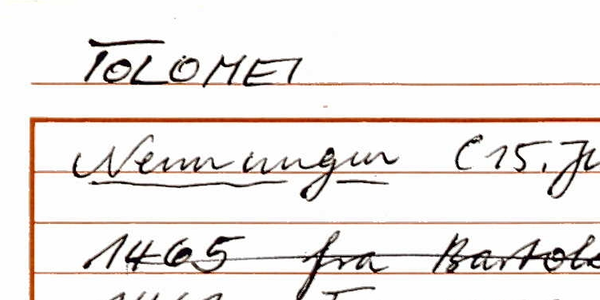 TOLOMEI
Nennungen (15. Ju
1465 fra Bartolo
1461